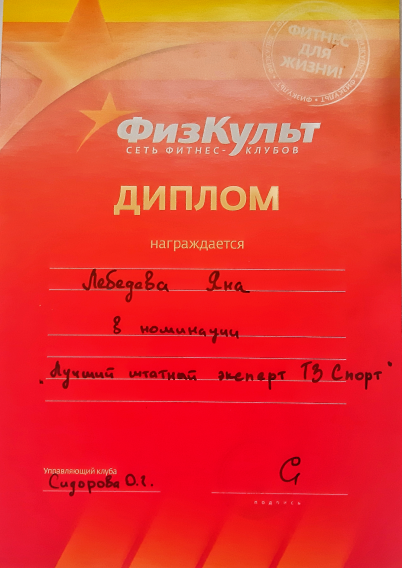 ФИТНЕС
ДЛЯ
ЖИЗНИ!
ФизКульт
СЕТЬ ФИТНЕС-КЛУБОВ
ДИПЛОМ
награждается
Лебедева Яна
в номинации
"Лучший штатный эксперт ТЗ Спорт"
Управляющий клуба
Сидорова О.г.
подпись